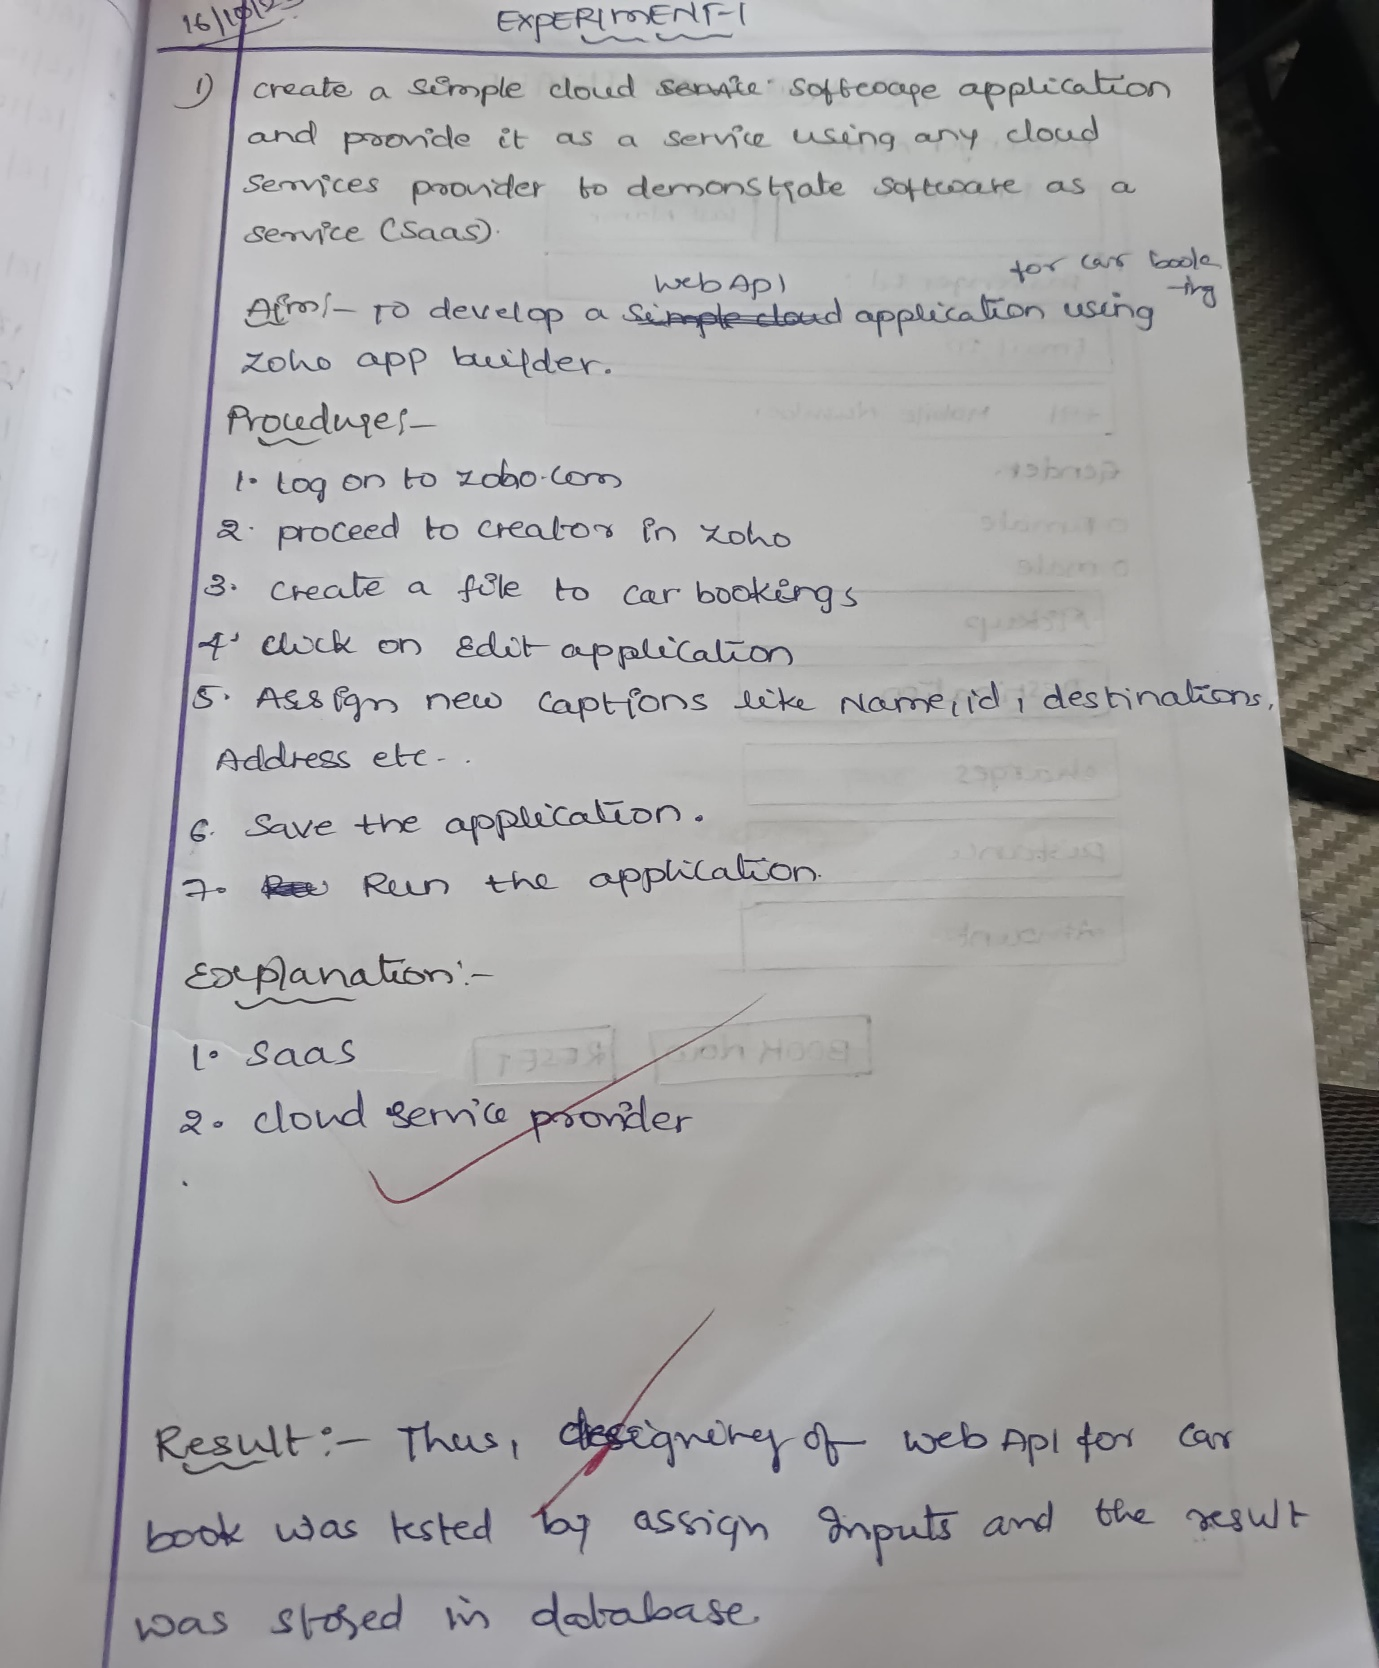 16/10/2
EXPERIMENT-1
1) create a simple cloud service softwave application
and provide it as a service using any cloud
services provider to demonstrate software as a
service (saas).
web ApI for car book
-ing
Aim:- To develop a simple cloud application using
zoho app builder.
Procedure:-
1. Log on to zoho.com
2. proceed to creator in zoho
3. create a file to car bookings
4. click on Edit application
5. Assign new captions like Name, id, destinations,
Address etc..
6. Save the application.
7. Run the application.
Explanation:-
1. saas
2. cloud service provider
Result:- Thus, designing of web ApI for car
book was tested by assign Inputs and the result
was stored in database.